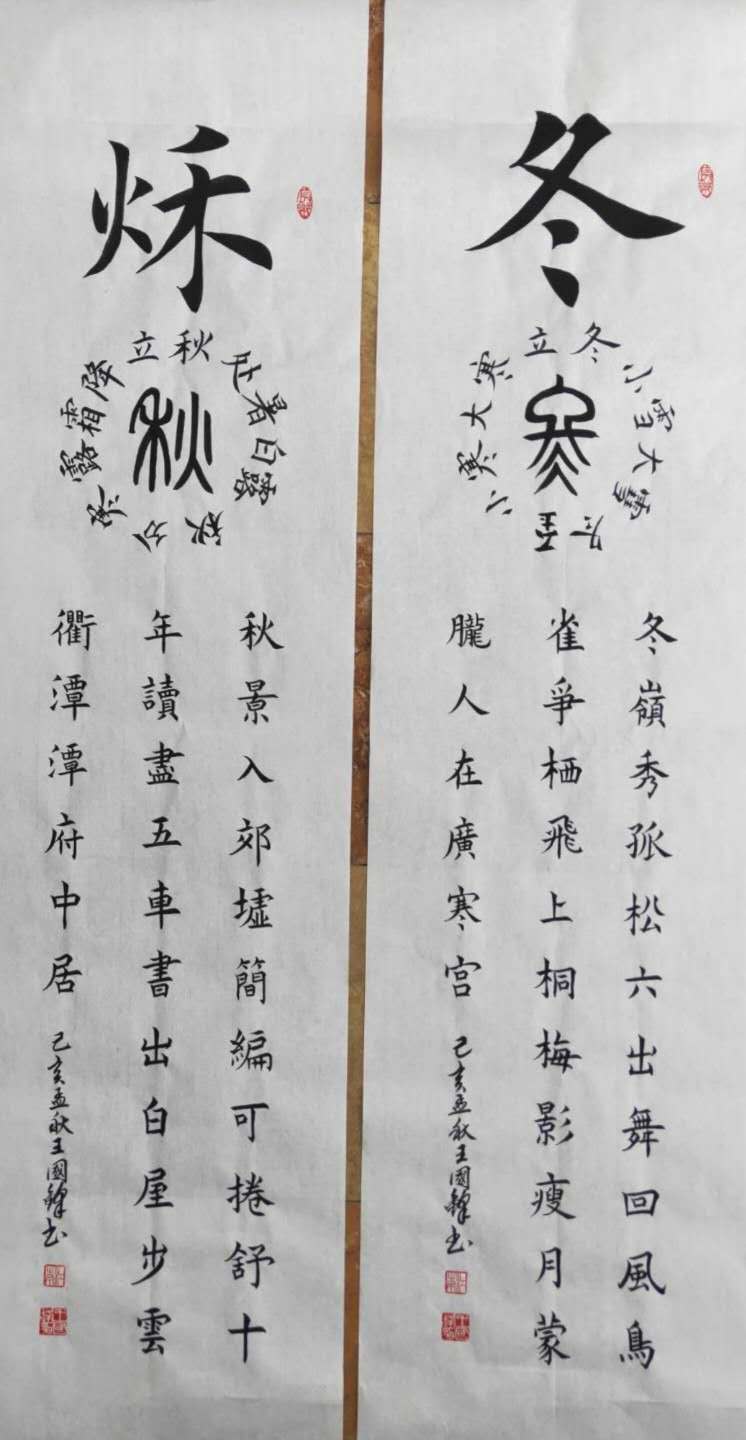 冬
立冬小雪大雪冬至小寒大寒
冬
冬嶺秀孤松六出舞回風鳥
雀爭栖飛上桐梅影瘦月蒙
朧人在廣寒宮
己亥孟秋王國鋒书
秌
立秋处暑白露秋分寒露霜降
秋
秋景入郊墟簡編可捲舒十
年讀盡五車書出白屋步雲
衢潭潭府中居
己亥孟秋王國鋒书